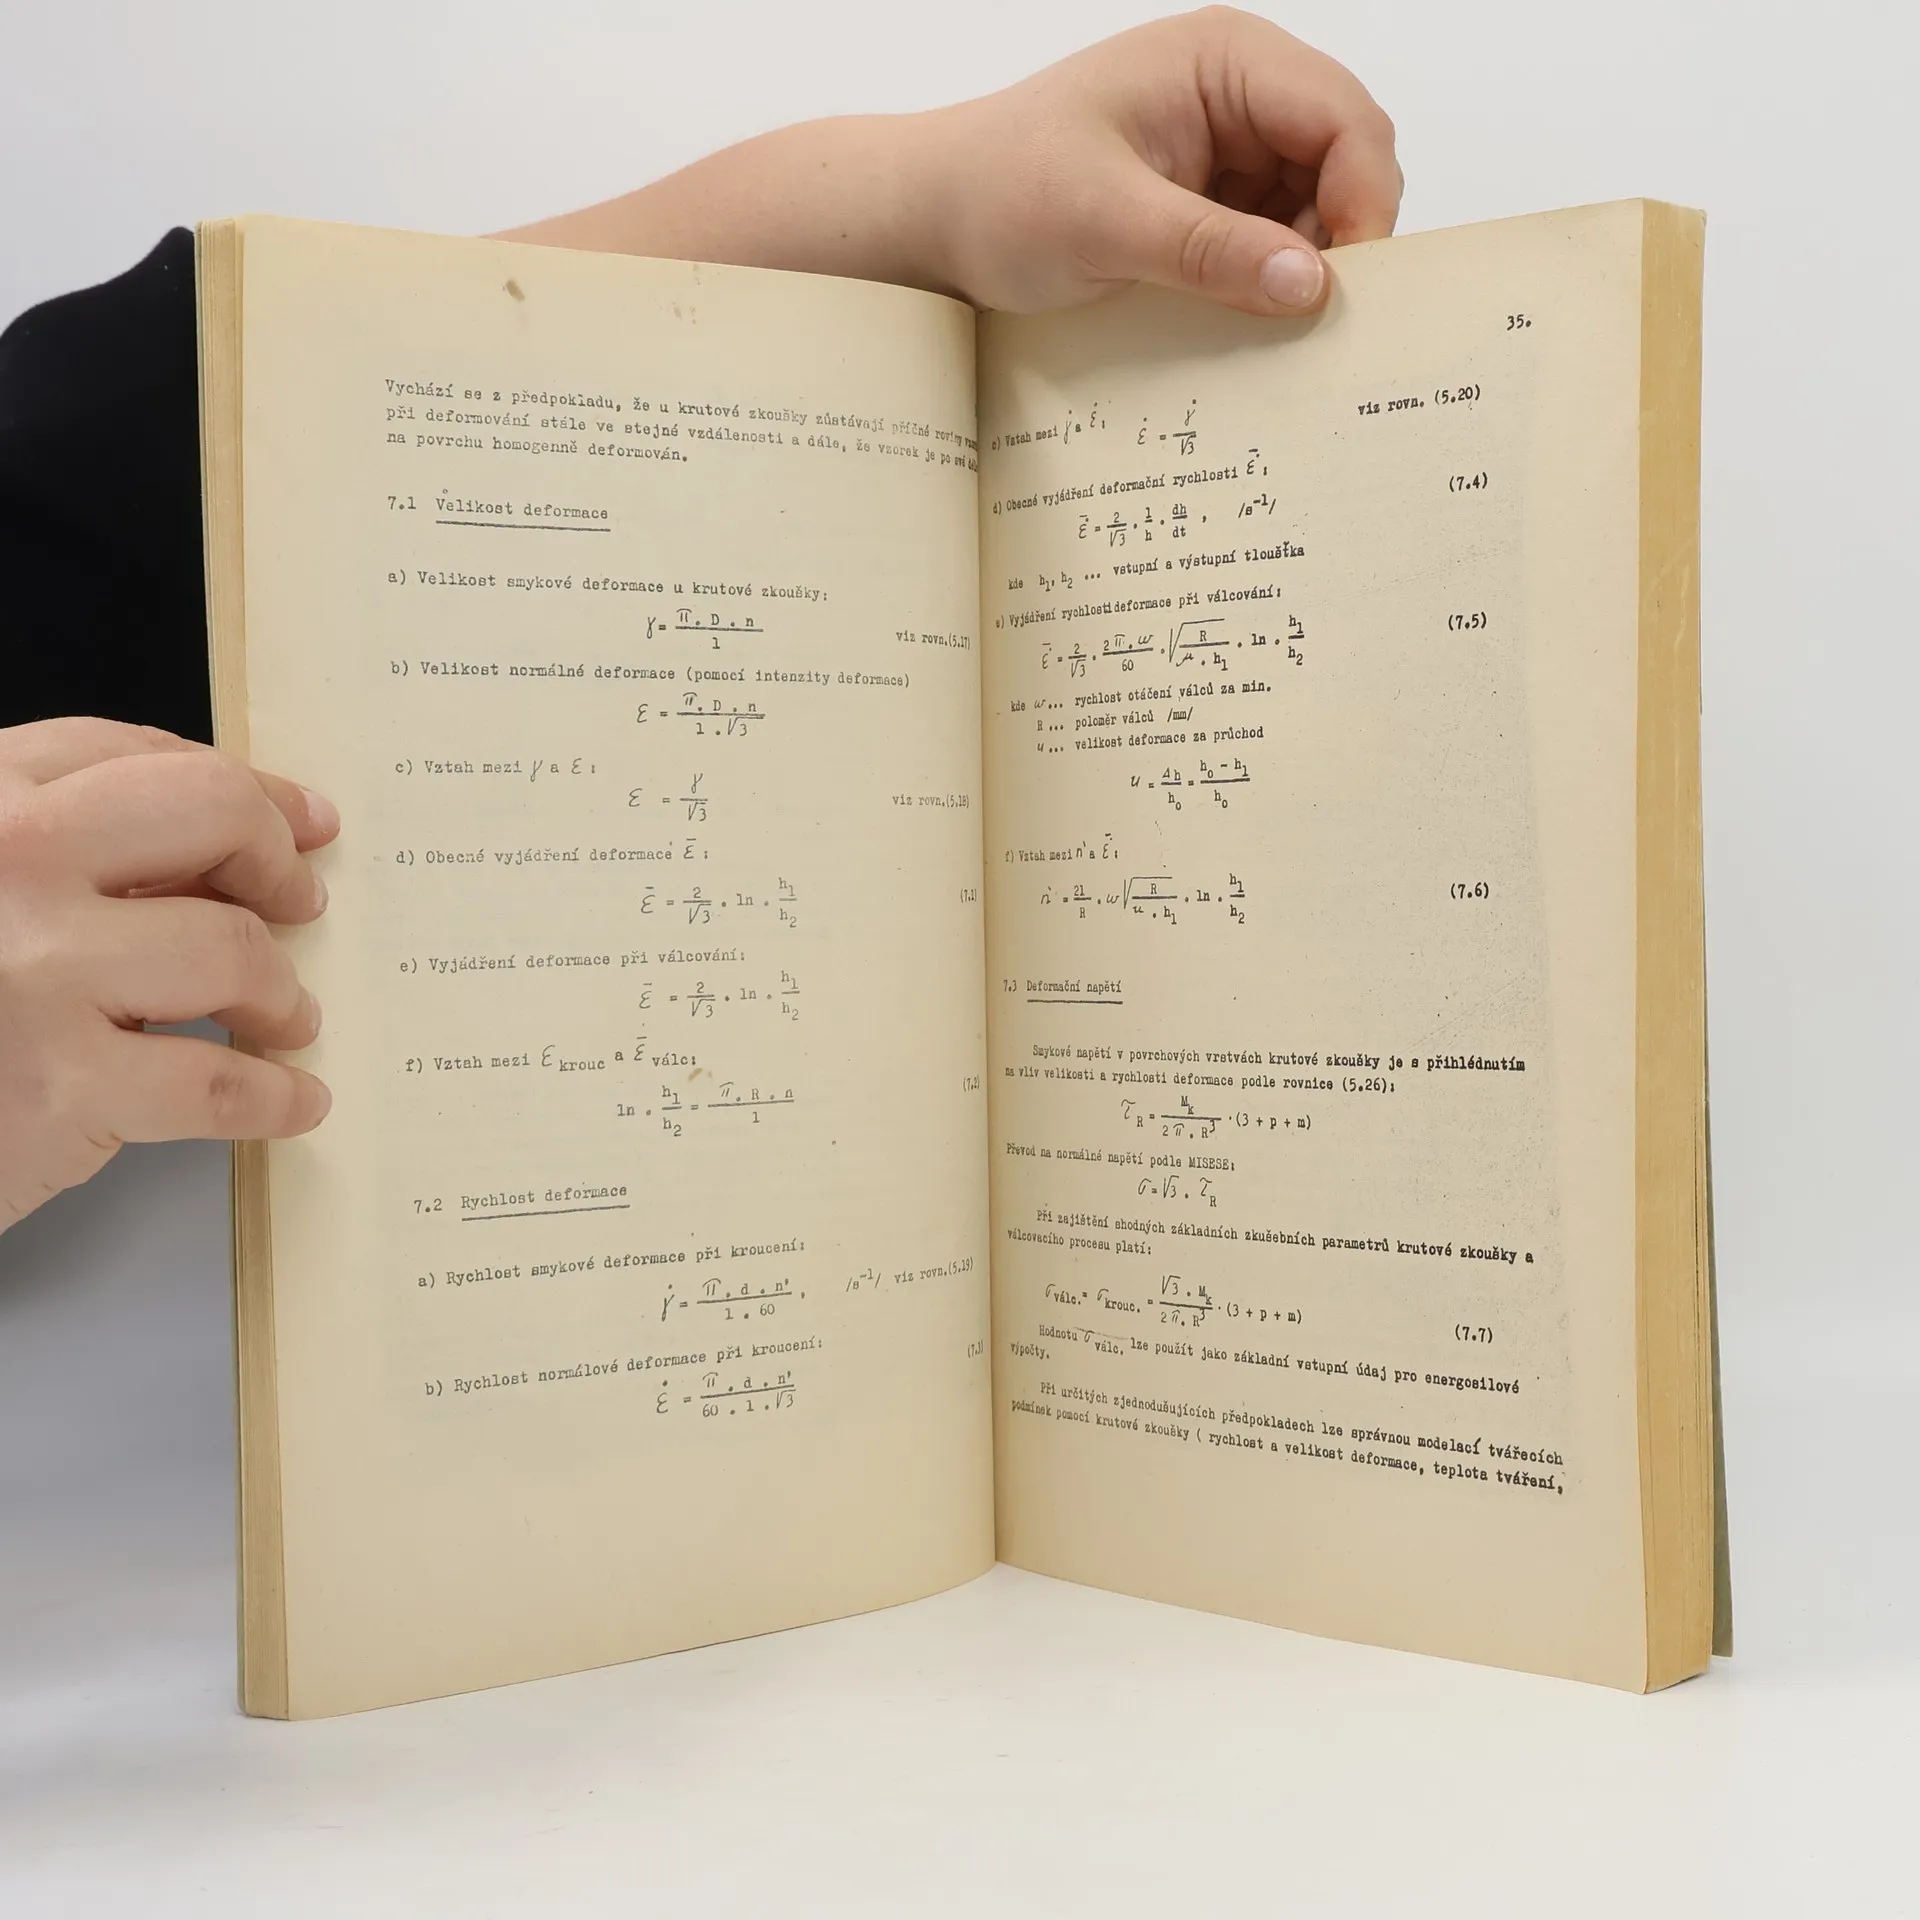 Vychází se z předpokladu, že u krutové zkoušky zůstávají příčné roviny
při deformování stále ve stejné vzdálenosti a dále, že vzorek je po své
na povrchu homogenně deformován.
7.1 Velikost deformace
a) Velikost smykové deformace u krutové zkoušky:
γ = π . D . n / l viz rovn.(5.17)
b) Velikost normálné deformace (pomocí intenzity deformace)
ε = π . D . n / l . √3
c) Vztah mezi γ a ε :
ε = γ / √3 viz rovn.(5.18)
d) Obecné vyjádření deformace ε̄ :
ε̄ = 2/√3 . ln . h1/h2 (7.1)
e) Vyjádření deformace při válcování:
ε̄ = 2/√3 . ln . h1/h2
f) Vztah mezi ε krouc a ε̄ válc:
ln . h1/h2 = π . R . n / l (7.2)
7.2 Rychlost deformace
a) Rychlost smykové deformace při kroucení:
γ̇ = π . d . n' / l . 60 , /s⁻¹/ viz rovn.(5.19)
b) Rychlost normálové deformace při kroucení:
ε̇ = π . d . n' / 60 . l . √3 (7.3)
35.
c) Vztah mezi γ̇ a ε̇ : ε̇ = γ̇ / √3 viz rovn. (5.20)
d) Obecné vyjádření deformační rychlosti ε̄̇ :
ε̄̇ = 2/√3 . 1/h . dh/dt , /s⁻¹/ (7.4)
kde h1, h2 ... vstupní a výstupní tloušťka
e) Vyjádření rychlosti deformace při válcování:
ε̄̇ = 2/√3 . 2π . w / 60 . √(R / μ . h1) . ln . h1/h2 (7.5)
kde w... rychlost otáčení válců za min.
R ... poloměr válců /mm/
u ... velikost deformace za průchod
u = Δh/h0 = h0 - h1 / h0
f) Vztah mezi n' a ε̄̇ :
n' = 2l/R . w √(R / u . h1) . ln . h1/h2 (7.6)
7.3 Deformační napětí
Smykové napětí v povrchových vrstvách krutové zkoušky je s přihlédnutím
na vliv velikosti a rychlosti deformace podle rovnice (5.26):
τR = Mk / 2π . R³ . (3 + p + m)
Převod na normálné napětí podle MISESE:
σ = √3 . τR
Při zajištění shodných základních zkušebních parametrů krutové zkoušky a
válcovacího procesu platí:
σválc. = σkrouc. = √3 . Mk / 2π . R³ . (3 + p + m) (7.7)
Hodnotu σ válc. lze použít jako základní vstupní údaj pro energosilové
výpočty.
Při určitých zjednodušujících předpokladech lze správnou modelací tvářecích
podmínek pomocí krutové zkoušky ( rychlost a velikost deformace, teplota tváření,